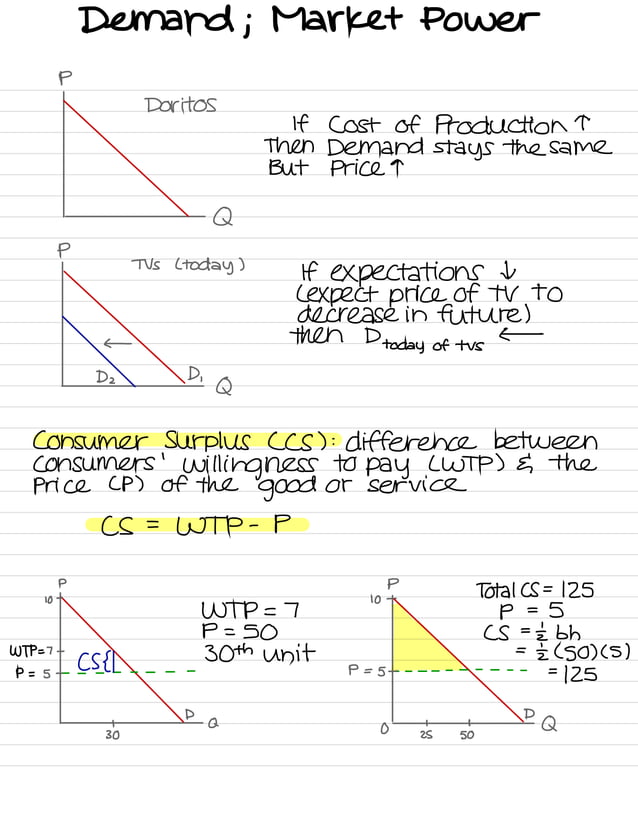 Demand; Market Power
P
Doritos
If Cost of Production ↑
Then Demand stays the same
But Price ↑
Q
P
TVs (today)
If expectations ↓
(expect price of TV to
decrease in future)
then D today of tvs ←
←
D₂
D₁
Q
Consumer Surplus (CS): difference between
consumers' willingness to pay (WTP) & the
Price (P) of the good or service
CS = WTP - P
P
10
WTP=7
P = 5
CS{
D
Q
30
WTP = 7
P = 50
30th unit
P
10
P = 5
0
25
50
D
Q
Total CS = 125
P = 5
CS = ½ bh
= ½ (50)(5)
= 125